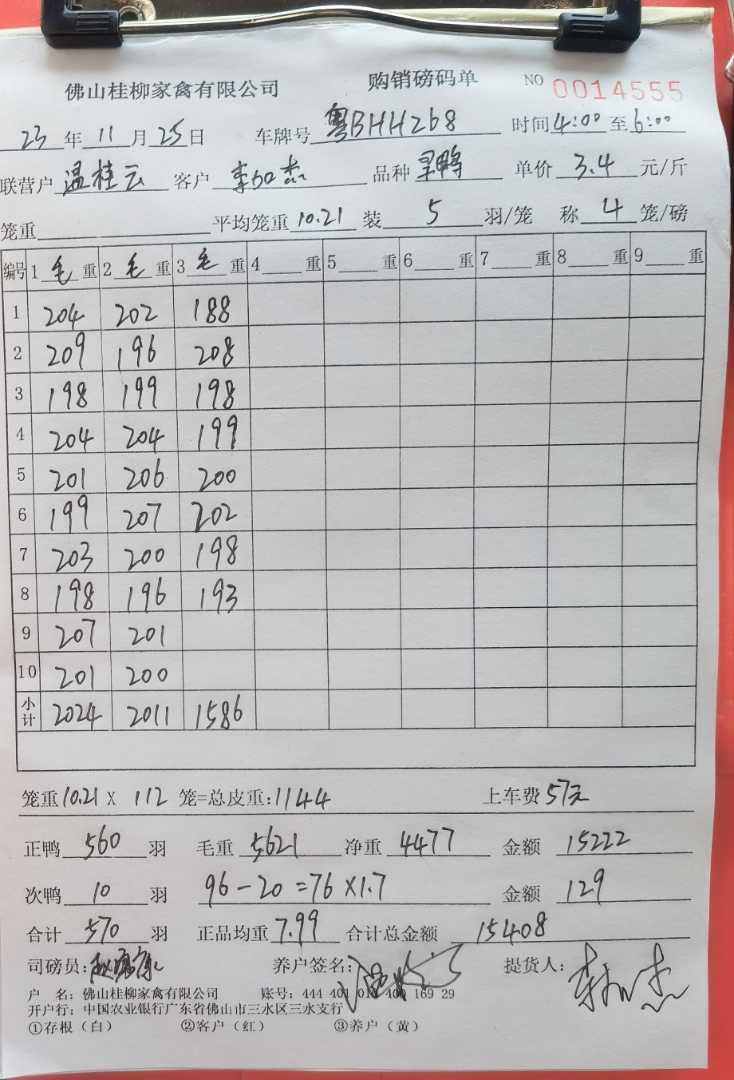 佛山桂柳家禽有限公司 购销磅码单 NO 0014555
23 年 11 月 25 日 车牌号 粤BHH268 时间 4:00 至 6:00
联营户 温桂云 客户 李 杰 品种 鸭 单价 3.4 元/斤
笼重 平均笼重 10.21 装 5 羽/笼 称 4 笼/磅
编号 1 毛 重 2 毛 重 3 毛 重 4 重 5 重 6 重 7 重 8 重 9 重
1 204 202 188
2 209 196 208
3 198 199 198
4 204 204 199
5 201 206 200
6 199 207 202
7 203 200 198
8 198 196 193
9 207 201
10 201 200
小计 2024 2011 1586
笼重 10.21 X 112 笼=总皮重:1144 上车费 57元
正鸭 560 羽 毛重 5621 净重 4477 金额 15222
次鸭 10 羽 96-20=76×1.7 金额 129
合计 570 羽 正品均重 7.99 合计总金额 15408
司磅员: 养户签名: 提货人:
户 名: 佛山桂柳家禽有限公司 账号: 444 401 01 400 169 29
开户行: 中国农业银行广东省佛山市三水区三水支行
①存根(白) ②客户(红) ③养户(黄)